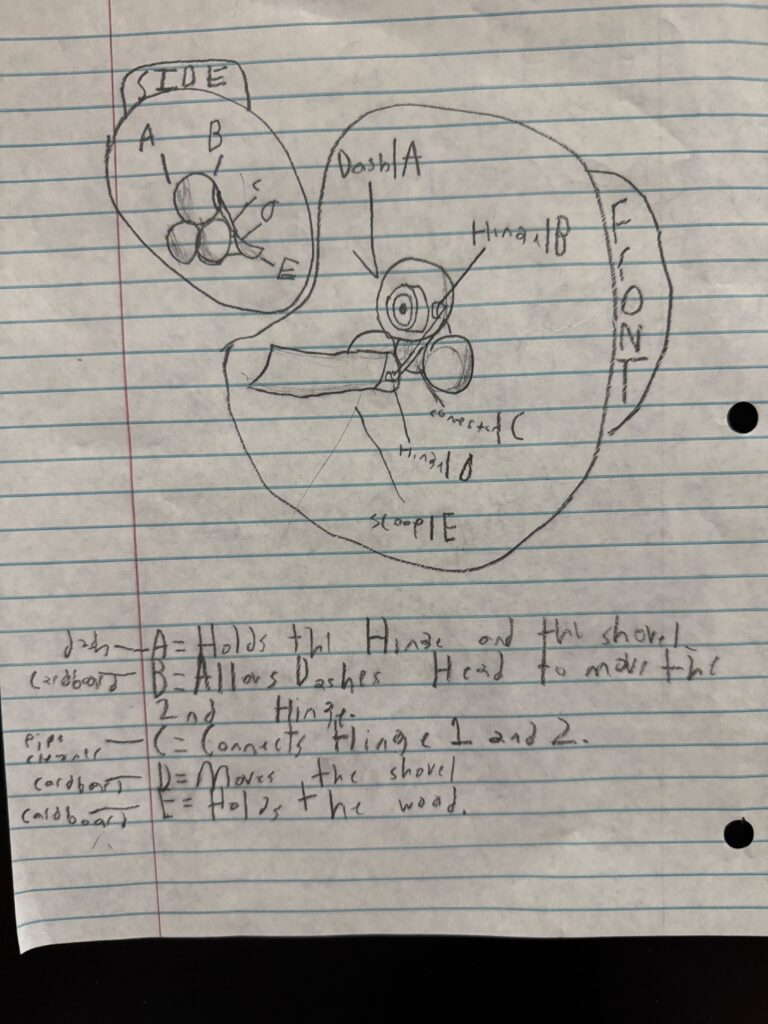 SIDE
A B
C
D
E
Dash/A
Hinge/B
FrONT
connecter/C
Hinge/D
scoop/E
dash — A = Holds the Hinge and the shovel.
cardboard — B = Allows Dashes Head to move the
2nd Hinge.
pipe cleaners — C = Connects Hinge 1 and 2.
cardboard — D = Moves the shovel
cardboard — E = Holds the wood.